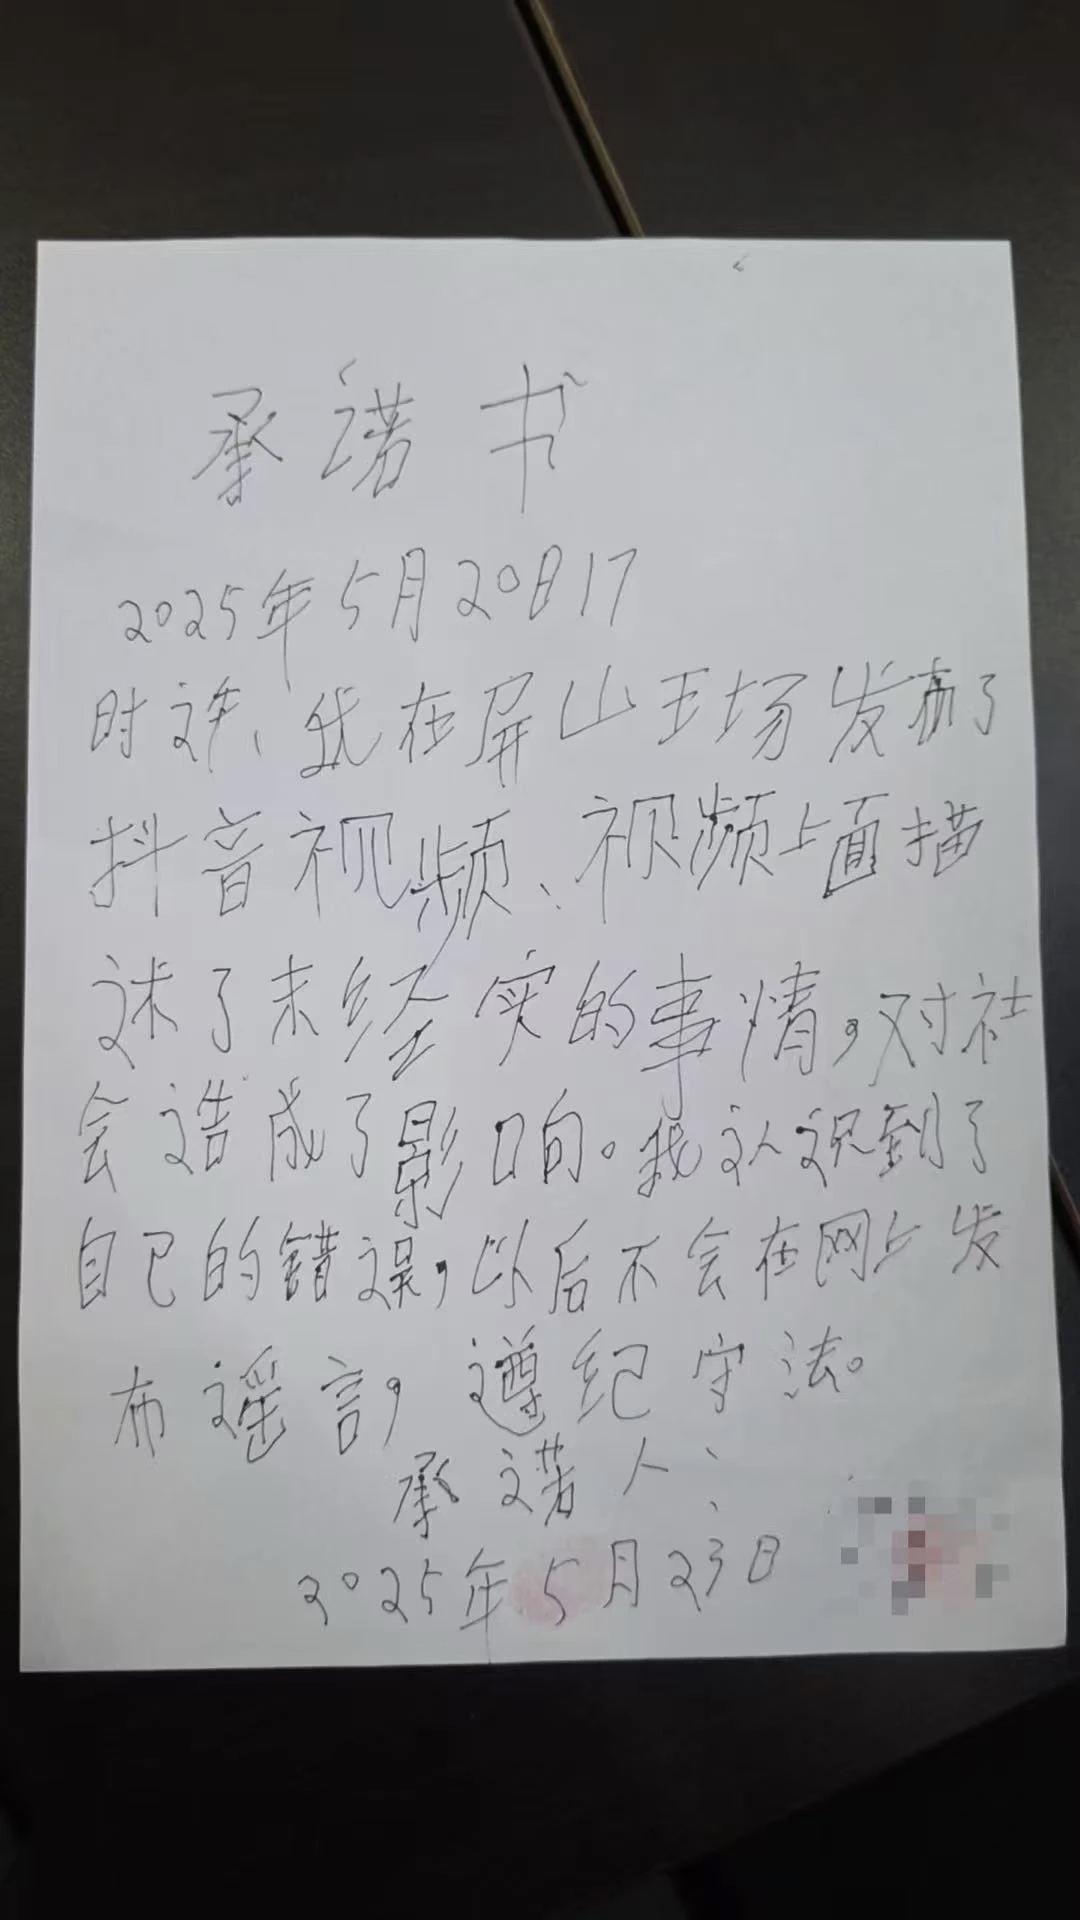 承诺书
2025年5月20日17
时许、我在屏山王场发布了
抖音视频、视频上面描
述了未经实的事情,对社
会造成了影响。我认识到了
自己的错误,以后不会在网上发
布谣言,遵纪守法。
承诺人:
2025年5月23日